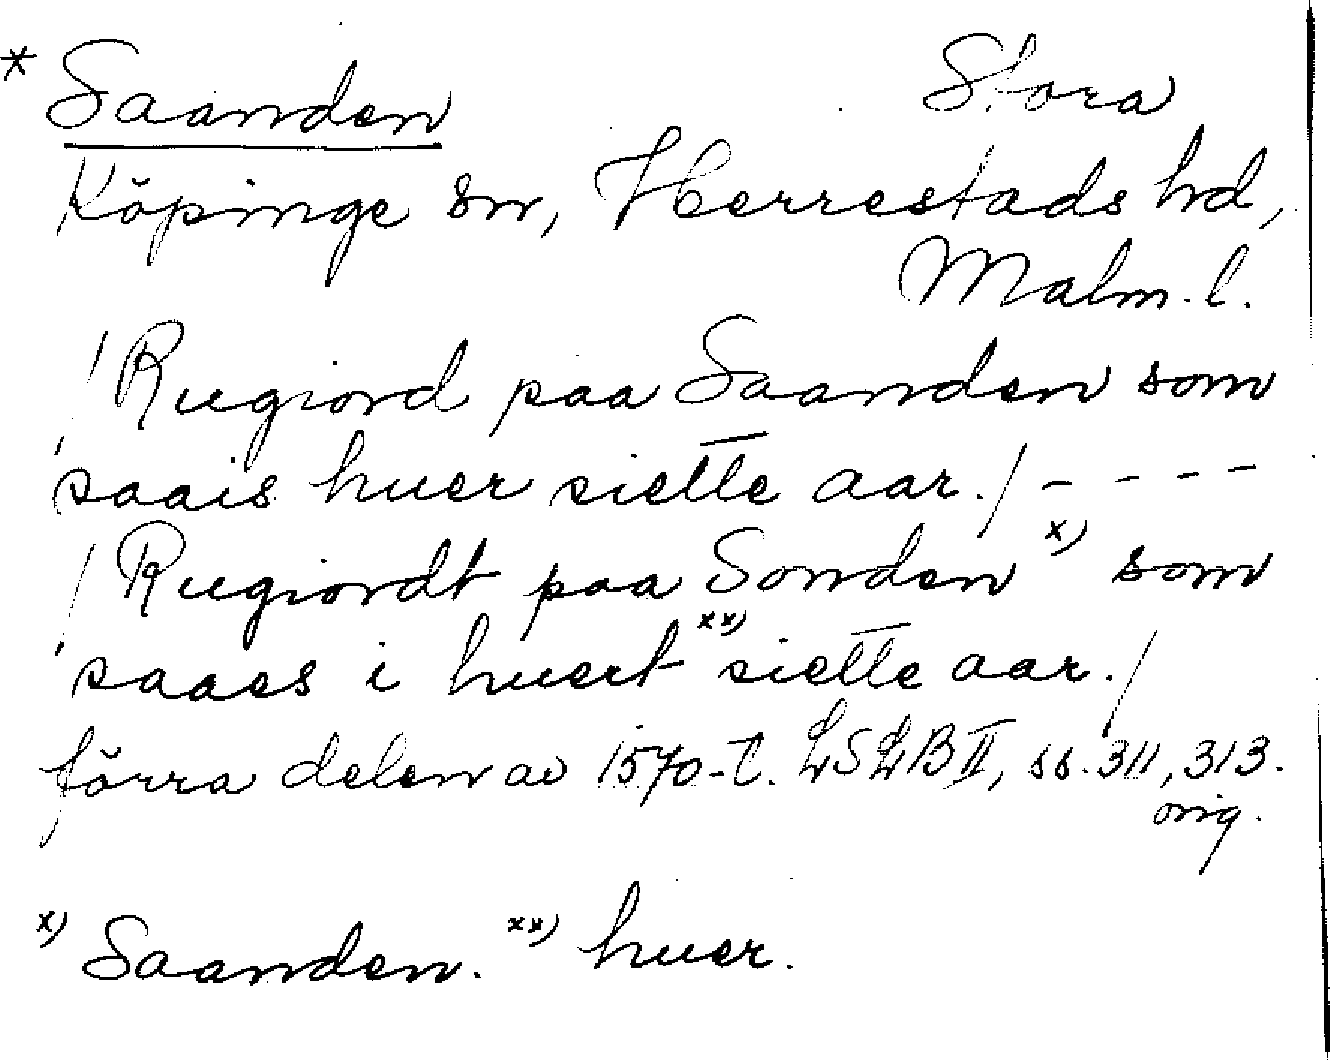 * Saanden Stora
Köpinge sn, Herrestads hd,
Malm. l.
/ Rugiord paa Saanden som
saais huer siette aar. / - - - -
/ Rugiordt paa Sonden x) som
saaes i huert xx) siette aar. /
förra delen av 1570-t. LSLB II, ss. 311, 313.
orig.
x) Saanden. xx) huer.